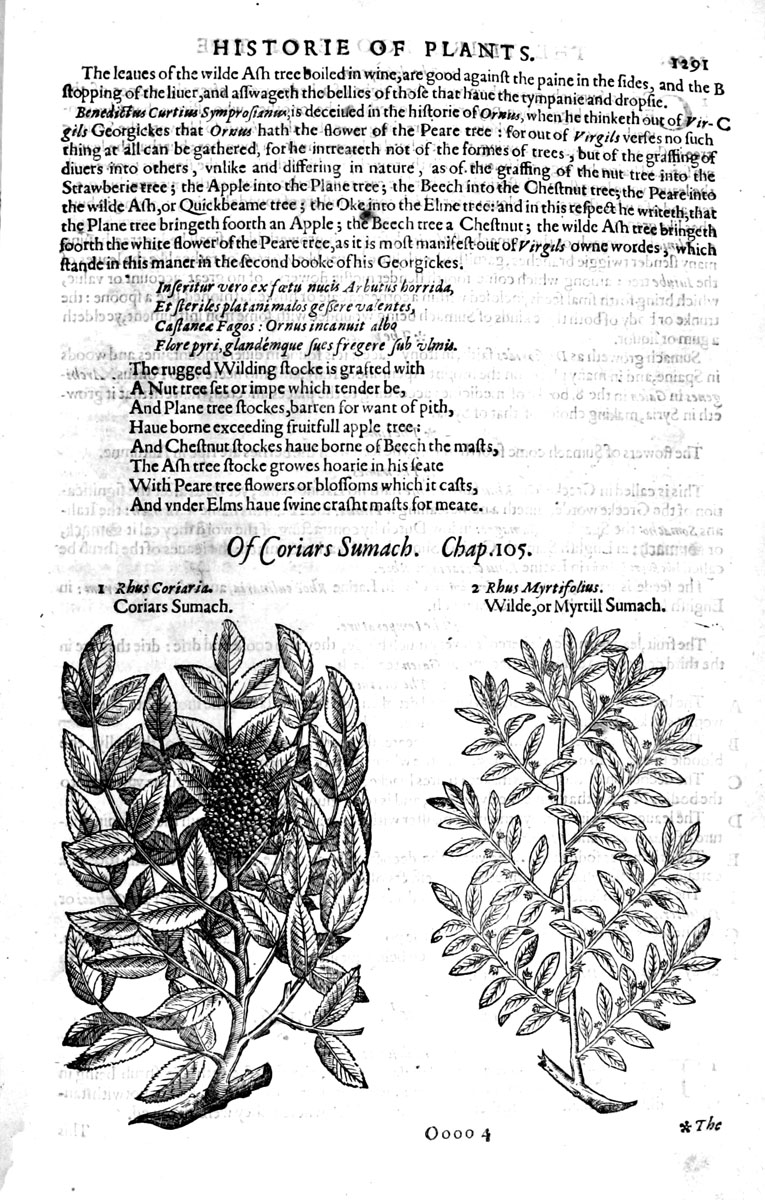 HISTORIE OF PLANTS.
1291
The leaues of the wilde Ash tree boiled in wine, are good against the paine in the sides, and the B
stopping of the liuer, and asswageth the bellies of those that haue the tympanie and dropsie.
Benedictus Curtius Symprosianus, is deceiued in the historie of Ornus, when he thinketh out of Vir- C
gils Georgickes that Ornus hath the flower of the Peare tree: for out of Virgils verses no such
thing at all can be gathered, for he intreateth not of the formes of trees, but of the graffing of
diuers into others, vnlike and differing in nature, as of the graffing of the nut tree into the
Strawberie tree; the Apple into the Plane tree; the Beech into the Chestnut tree; the Peare into
the wilde Ash, or Quickbeame tree; the Oke into the Elme tree: and in this respect he writeth, that
the Plane tree bringeth foorth an Apple; the Beech tree a Chestnut; the wilde Ash tree bringeth
foorth the white flower of the Peare tree, as it is most manifest out of Virgils owne wordes, which
stande in this maner in the second booke of his Georgickes.
Inseritur vero ex fœtu nucis Arbutus horrida,
Et steriles platani malos gessere valentes,
Castaneæ Fagos: Ornus incanuit albo
Flore pyri, glandémque sues fregere sub vlmis.
The rugged Wilding stocke is grafted with
A Nut tree set or impe which tender be,
And Plane tree stockes, barren for want of pith,
Haue borne exceeding fruitfull apple tree:
And Chestnut stockes haue borne of Beech the masts,
The Ash tree stocke growes hoarie in his seate
With Peare tree flowers or blossoms which it casts,
And vnder Elms haue swine crasht masts for meate.
Of Coriars Sumach. Chap.105.
1 Rhus Coriaria.
Coriars Sumach.
2 Rhus Myrtifolius.
Wilde, or Myrtill Sumach.
Oooo 4
*The